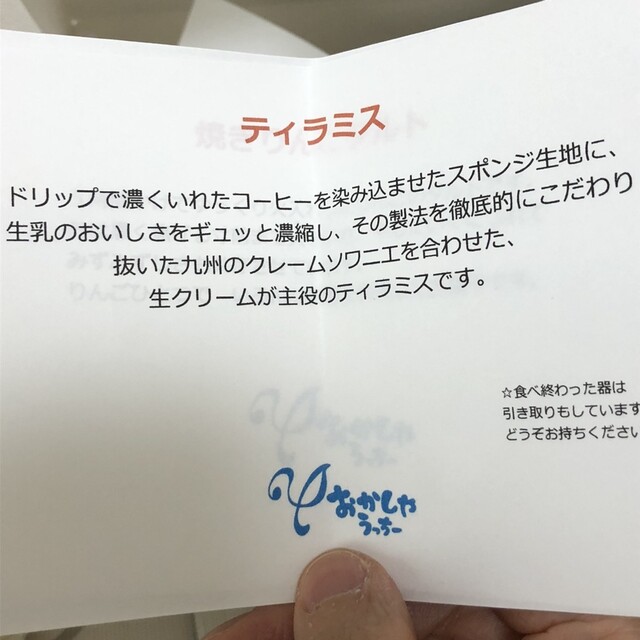 ティラミス
ドリップで濃くいれたコーヒーを染み込ませたスポンジ生地に、
生乳のおいしさをギュッと濃縮し、その製法を徹底的にこだわり
抜いた九州のクレームソワニエを合わせた、
生クリームが主役のティラミスです。
☆食べ終わった器は
引き取りもしています
どうぞお持ちください
おかしや
うっちー